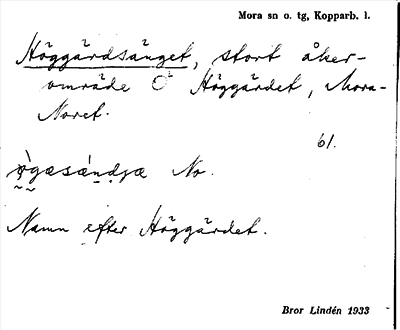 Mora sn o. tg, Kopparb. l.
Höggärdsänget, stort åker-
område O Höggärdet, Mora-
Noret.
61.
No.
Namn efter Höggärdet.
Bror Lindén 1933